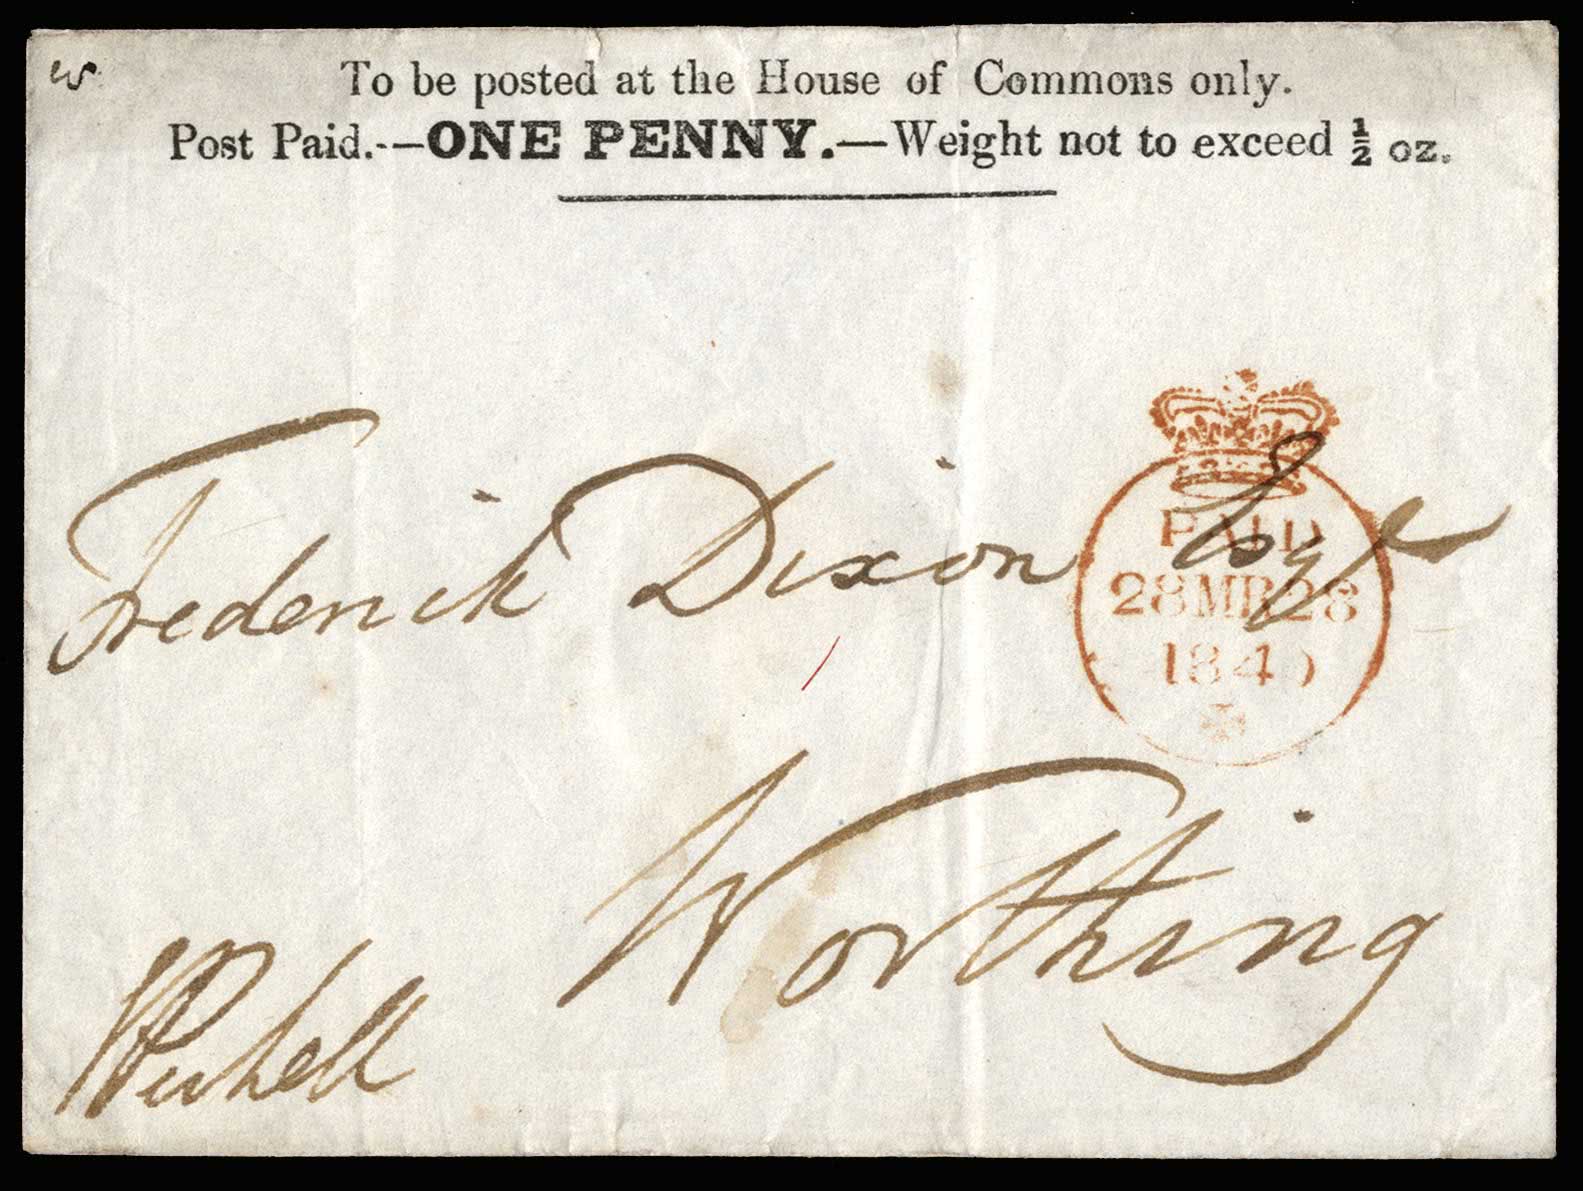 To be posted at the House of Commons only.
Post Paid.—ONE PENNY.—Weight not to exceed ½ oz.
Frederick Dixon Esqr
PAID
28 MR 28
1840
Worthing